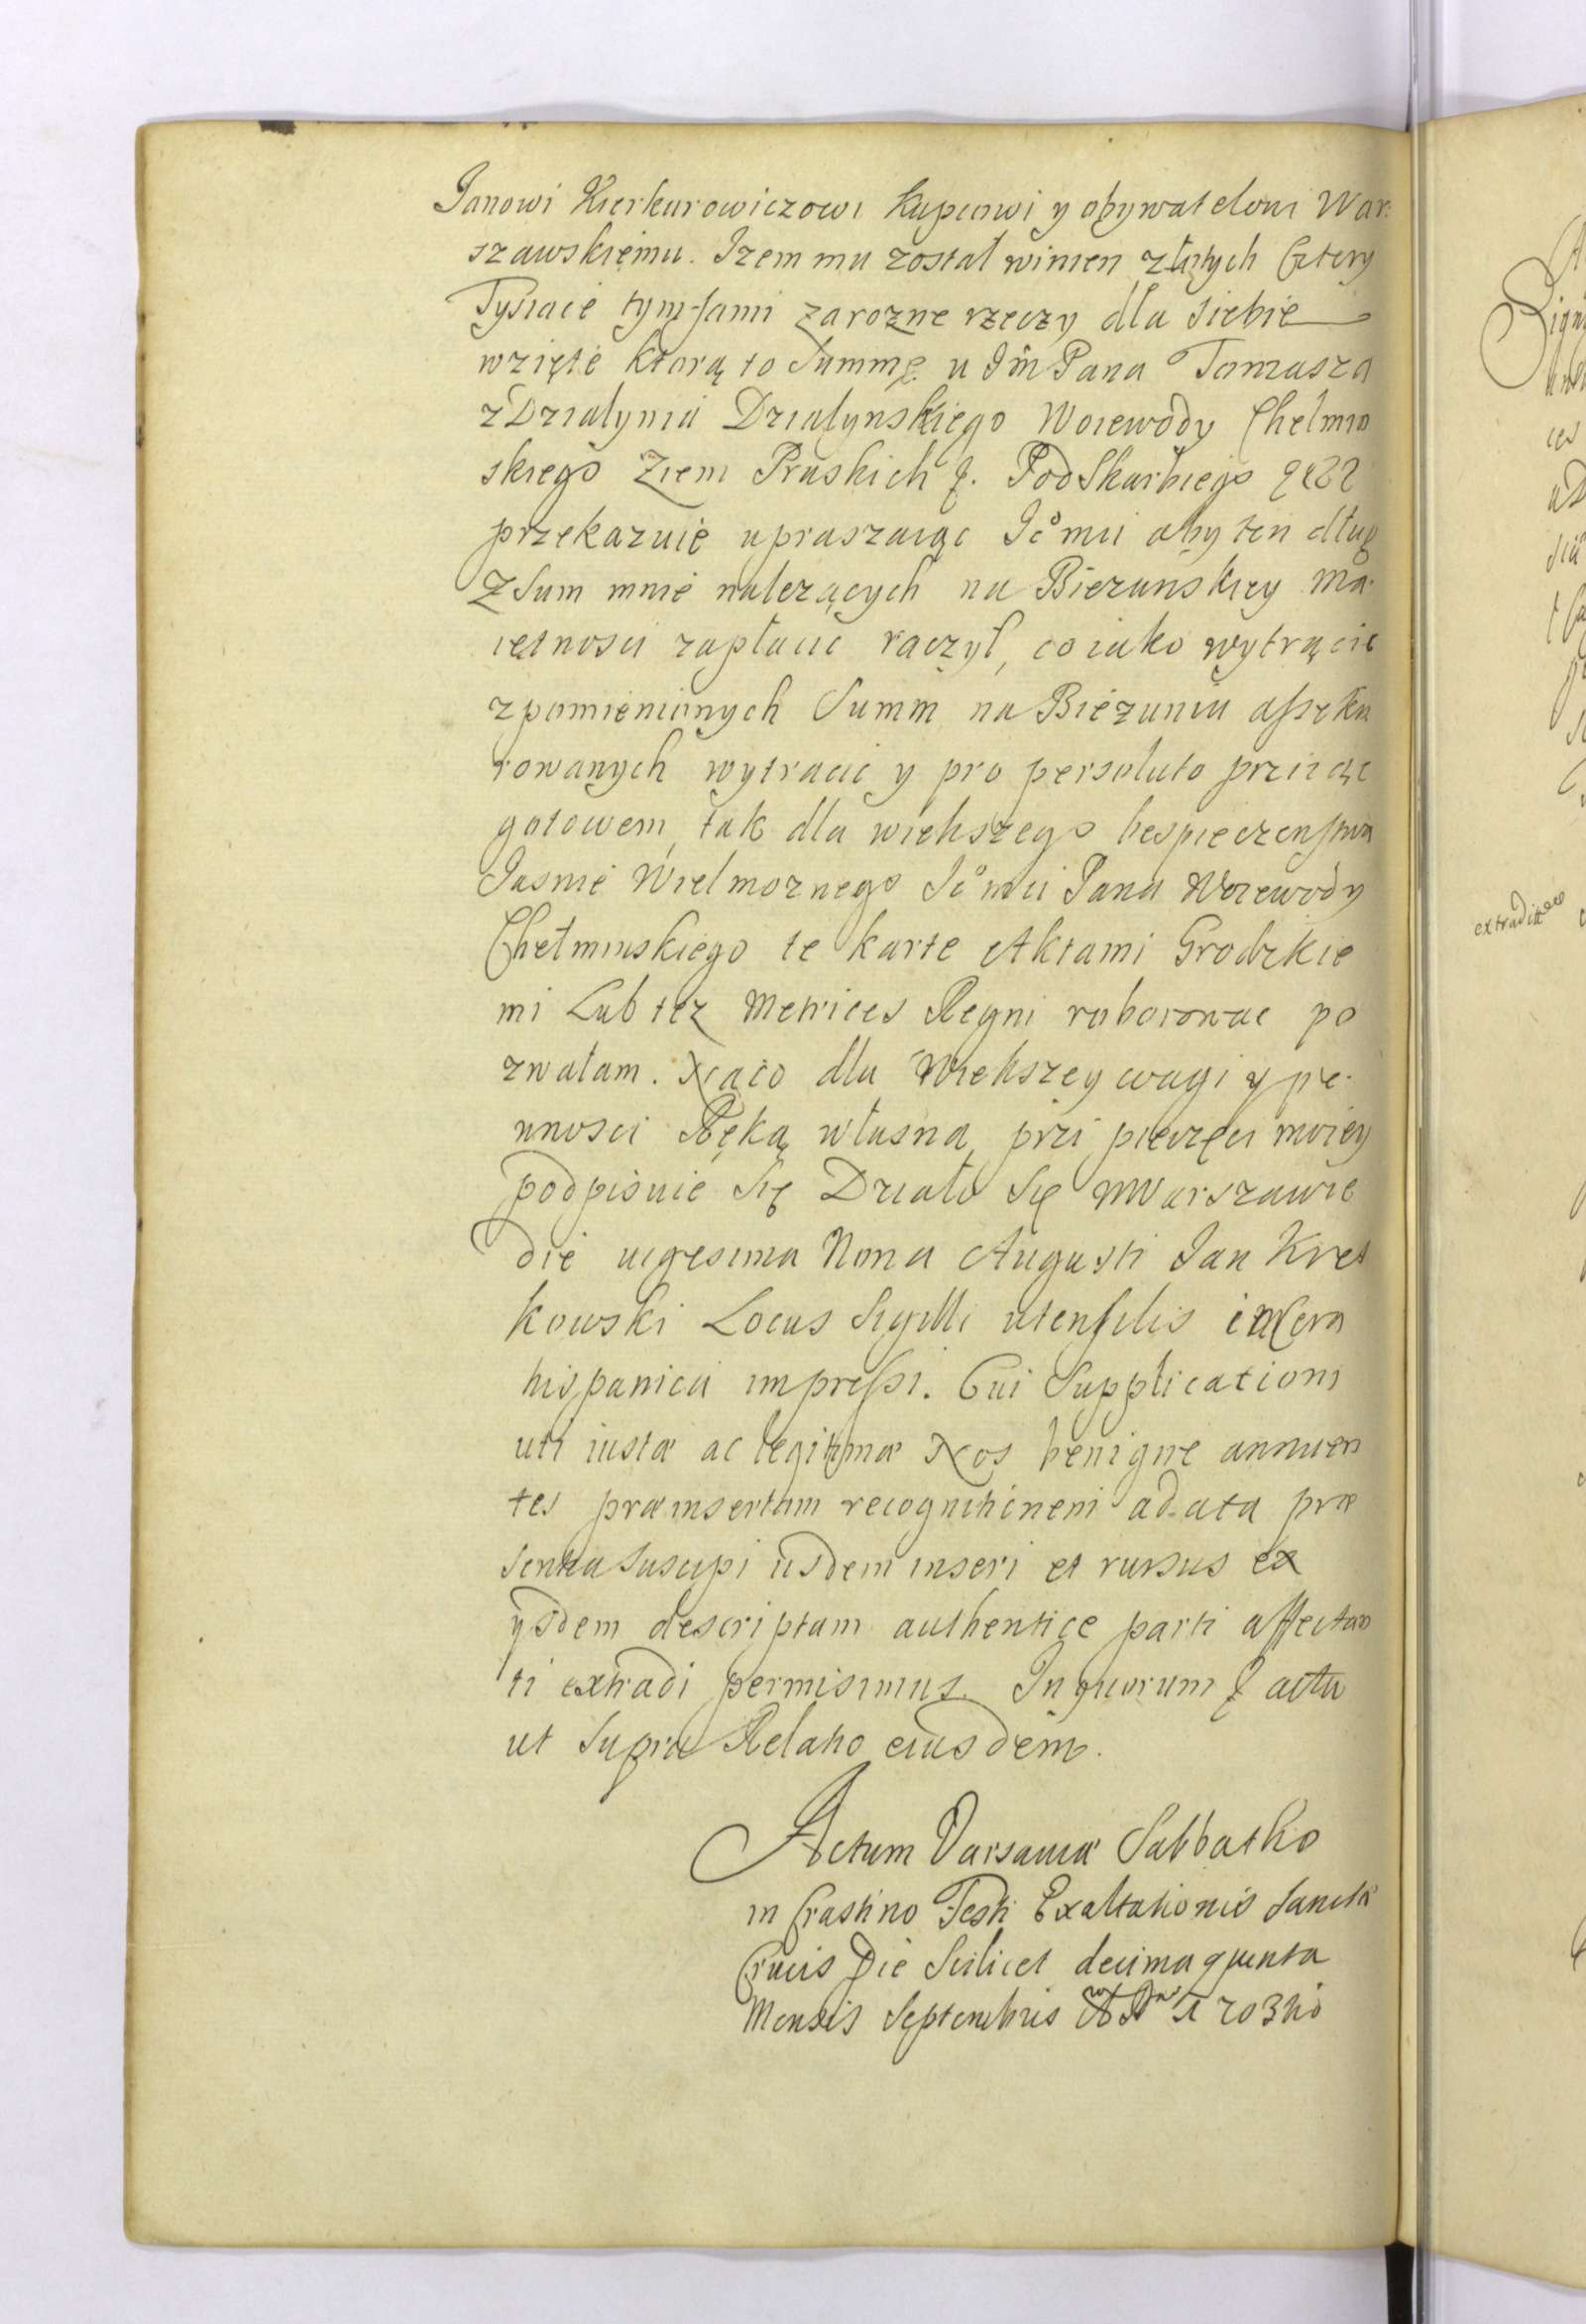 Janowi Kierkurowiczowi Kupcowi y obywatelowi War:
szawskiemu. Izem mu został winien złotych Cztery
Tysiące tymfami za rozne rzeczy dla siebie
wzięte ktorą to Summę u Jm̃ Pana Tomasza
z Dziatynia Działynskiego Woiewody Chełmin
skiego Ziem Pruskich P. Podskarbiego
przekazuie upraszaiąc Jc̊mci aby ten dług
z Sum mnie nalezących na Biezunskiey Ma:
iętnosci zapłacic raczył, co iako wytrącic
z pomienionych Summ na Biezuniu asseku
rowanych wytracic y pro persoluto przyiąc
gotowem, tak dla wiekszego bespieczenstwa
Jasnie Wielmoznego Jc̊mci Pana Woiewody
Chełminskiego te karte Aktami Grodzkie
mi Lub tez Metrices Regni roborowac po
zwalam. Na co dla Wiekszey wagi y pe:
wnosci Ręką własną przi pieczęci moiey
podpisuie się Działo się w Warszawie
die uigesima Nona Augusti Jan Kret
kowski Locus Sigilli utensilis in Cera
hispanica impressi. Cui Supplicationi
uti iustæ ac legitimæ Nos benigne annuen
tes præinsertam recognitionem ad acta præ
sentia suscipi iisdem inseri et rursus ex
ysdem descriptam authentice parti affectan
ti extradi permisimus. In quorum & acta
ut Supra Relatio eiusdem.
Actum Varsaviæ Sabbatho
in Crastino Festi Exaltationis Sanctæ
Crucis Die Scilicet decima quinta
Mensis Septembris
extraditum